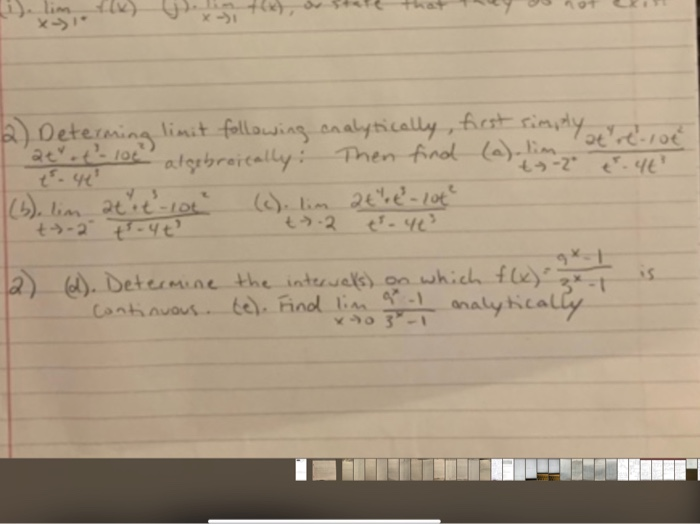 (i). lim f(x) (j). lim f(x), or state that they do not exist
x→1⁺ x→1
2) Determing limit following analytically, first simply
(2t⁴+t³-10t²)/(t⁵-4t³) algebraically: Then find (a). lim t→-2⁺ (2t⁴+t³-10t²)/(t⁵-4t³)
(b). lim t→-2⁻ (2t⁴+t³-10t²)/(t⁵-4t³) (c). lim t→-2 (2t⁴+t³-10t²)/(t⁵-4t³)
2) (d). Determine the interval(s) on which f(x)= (9ˣ-1)/(3ˣ-1) is
continuous. (e). Find lim x→0 (9ˣ-1)/(3ˣ-1) analytically